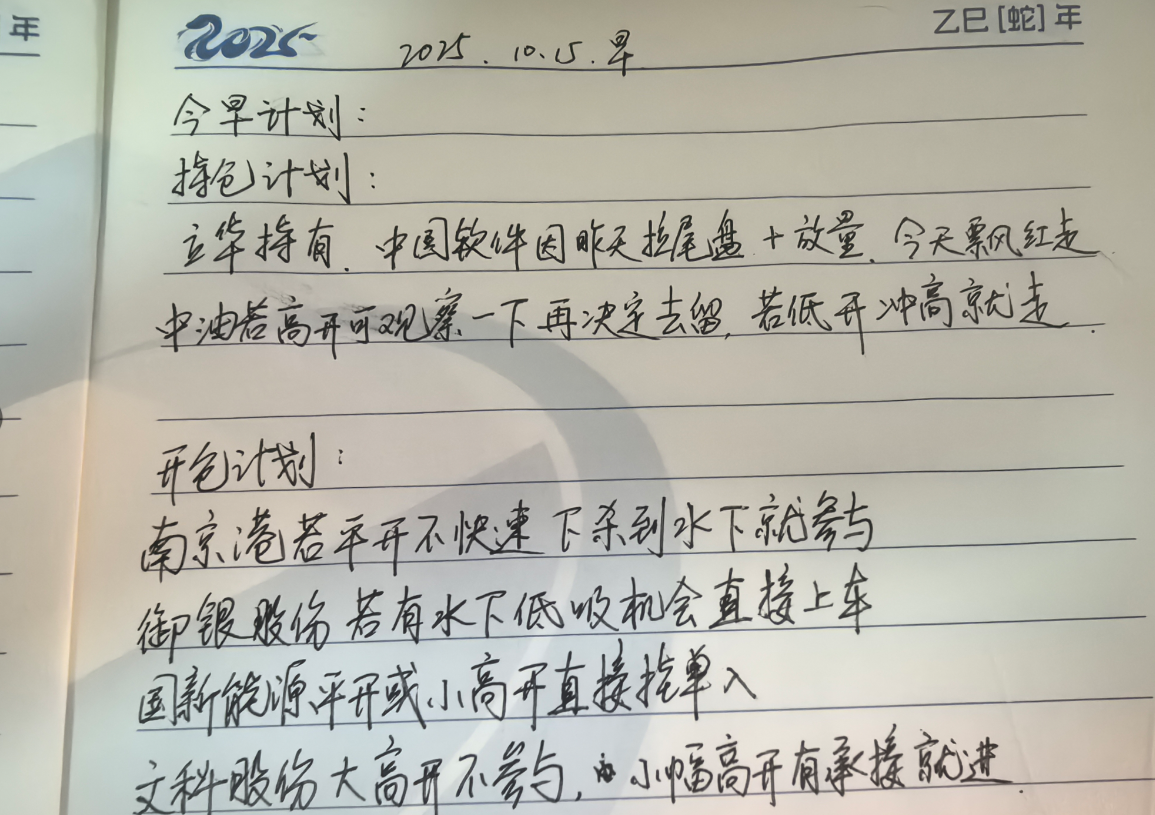 年
2025
乙巳[蛇]年
2025.10.15.早
今早计划：
持仓计划：
立华持有，中国软件因昨天拉尾盘+放量，今天飘红走
中油若高开可观察一下再决定去留，若低开冲高就走.
开仓计划：
南京港若平开不快速下杀到水下就参与
御银股份若有水下低吸机会直接上车
国新能源平开或小高开直接挂单入
文科股份大高开不参与，小幅高开有承接就进.